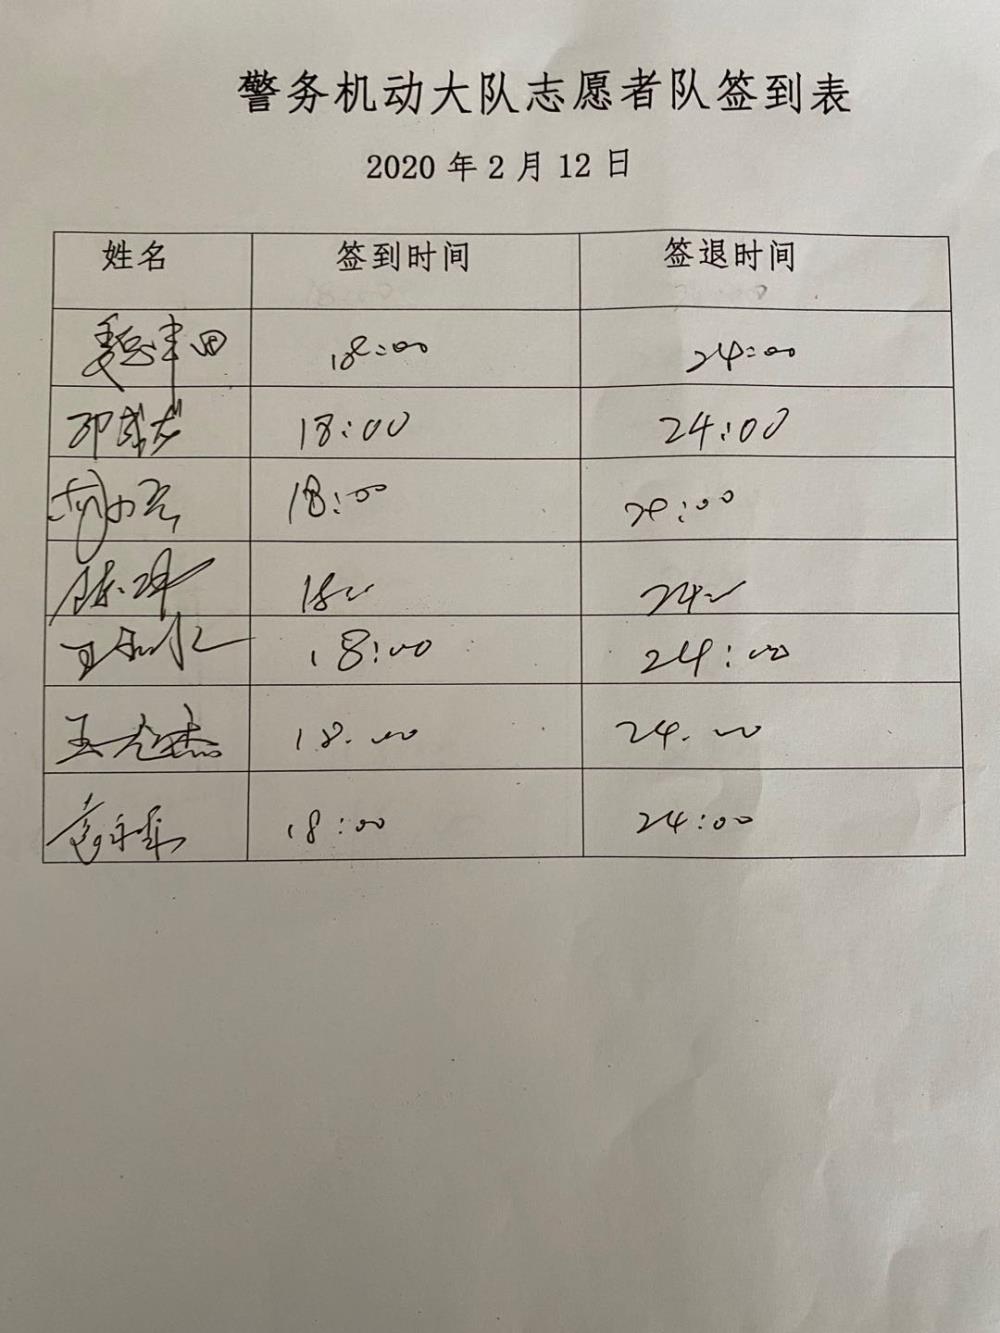 警务机动大队志愿者队签到表
2020 年 2 月 12 日
姓名 签到时间 签退时间
18:00 24:00
邓成龙 18:00 24:00
18:00 24:00
陈坤 18 24
王 18:00 24:00
王光杰 18.00 24.00
18:00 24:00